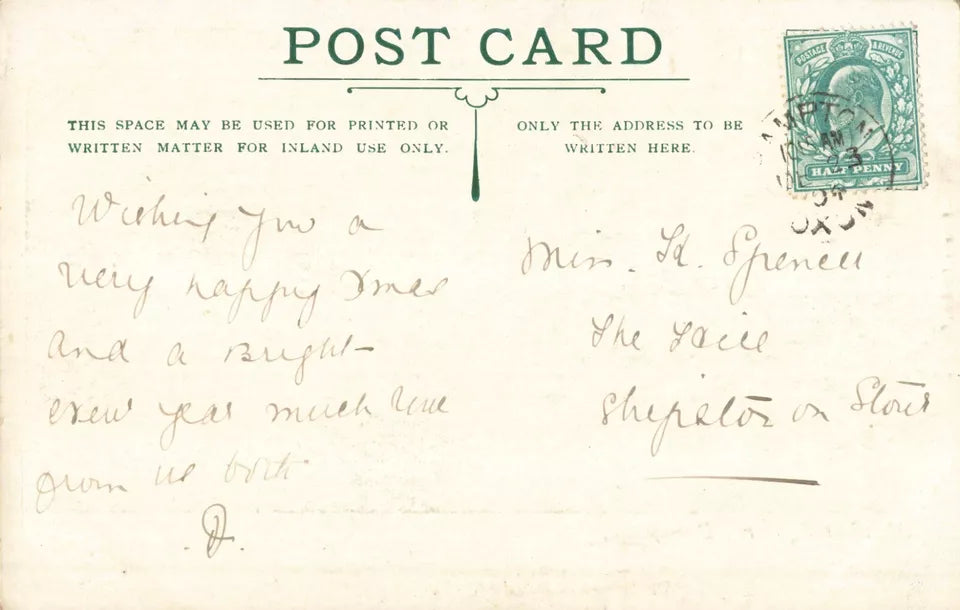 POST CARD
THIS SPACE MAY BE USED FOR PRINTED OR
WRITTEN MATTER FOR INLAND USE ONLY.
ONLY THE ADDRESS TO BE
WRITTEN HERE.
POSTAGE & REVENUE
HALF PENNY
AMPTON
AM
23
04
OXON
Wishing you a
very happy Xmas
and a Bright
New year much love
from us both
Miss. K. Spencer
The
Shipston on Stour